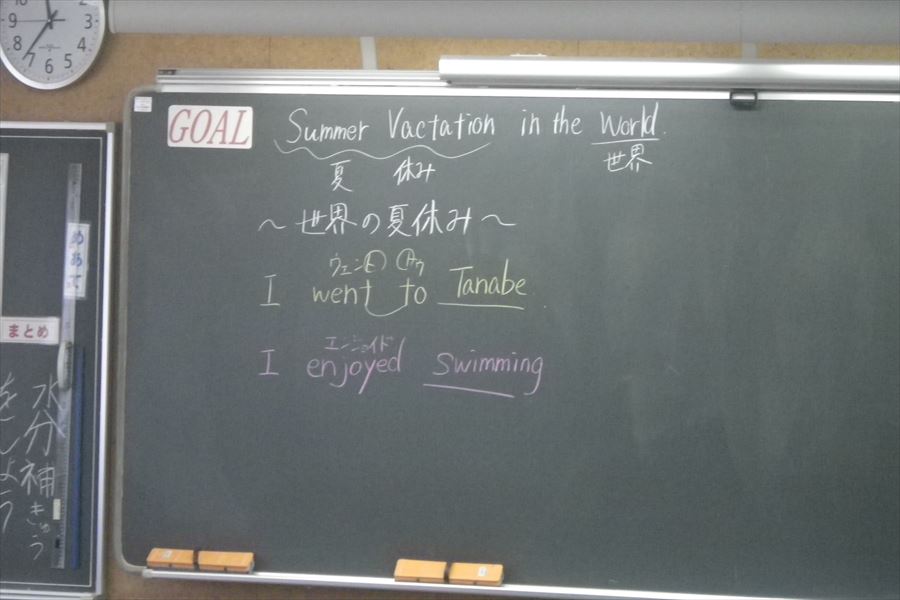 GOAL Summer Vactation in the World.
夏 休み 世界
～世界の夏休み～
ウェント トゥ
I went to Tanabe.
エンジョイド
I enjoyed swimming
まとめ
水分補きゅう
をしよう
12 3 4 5 6 7 8 9 10